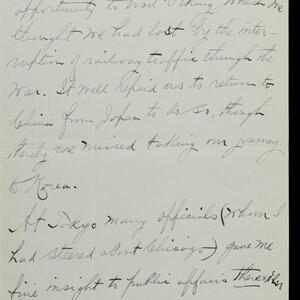 opportunity to visit Peking, which we
thought we had lost by the inter-
ruption of railway traffic through the
war. It well repaid us to return to
China from Japan to do so, though
thereby we missed taking our journey
to Korea.
At Tokyo many officials (whom I
had steered about Chicago) gave me
fine insight to public affairs there